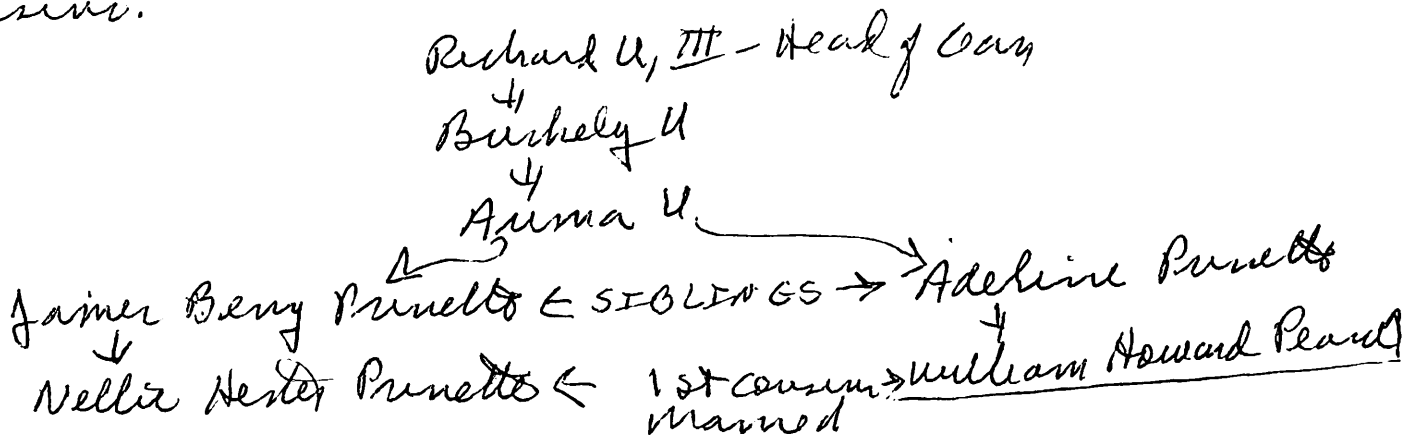 Richard U, III - Head of Clan
↓
Burkely U
↓
Anima U.
James Berry Prunetto ← SIBLINGS → Adeline Prunetto
↓ ↓
Nellie Hester Prunetto ← 1st cousin → William Howard Pearl
Married